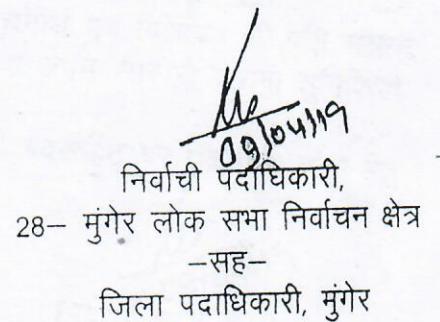 09/04/19
निर्वाची पदाधिकारी,
28– मुंगेर लोक सभा निर्वाचन क्षेत्र
–सह–
जिला पदाधिकारी, मुंगेर